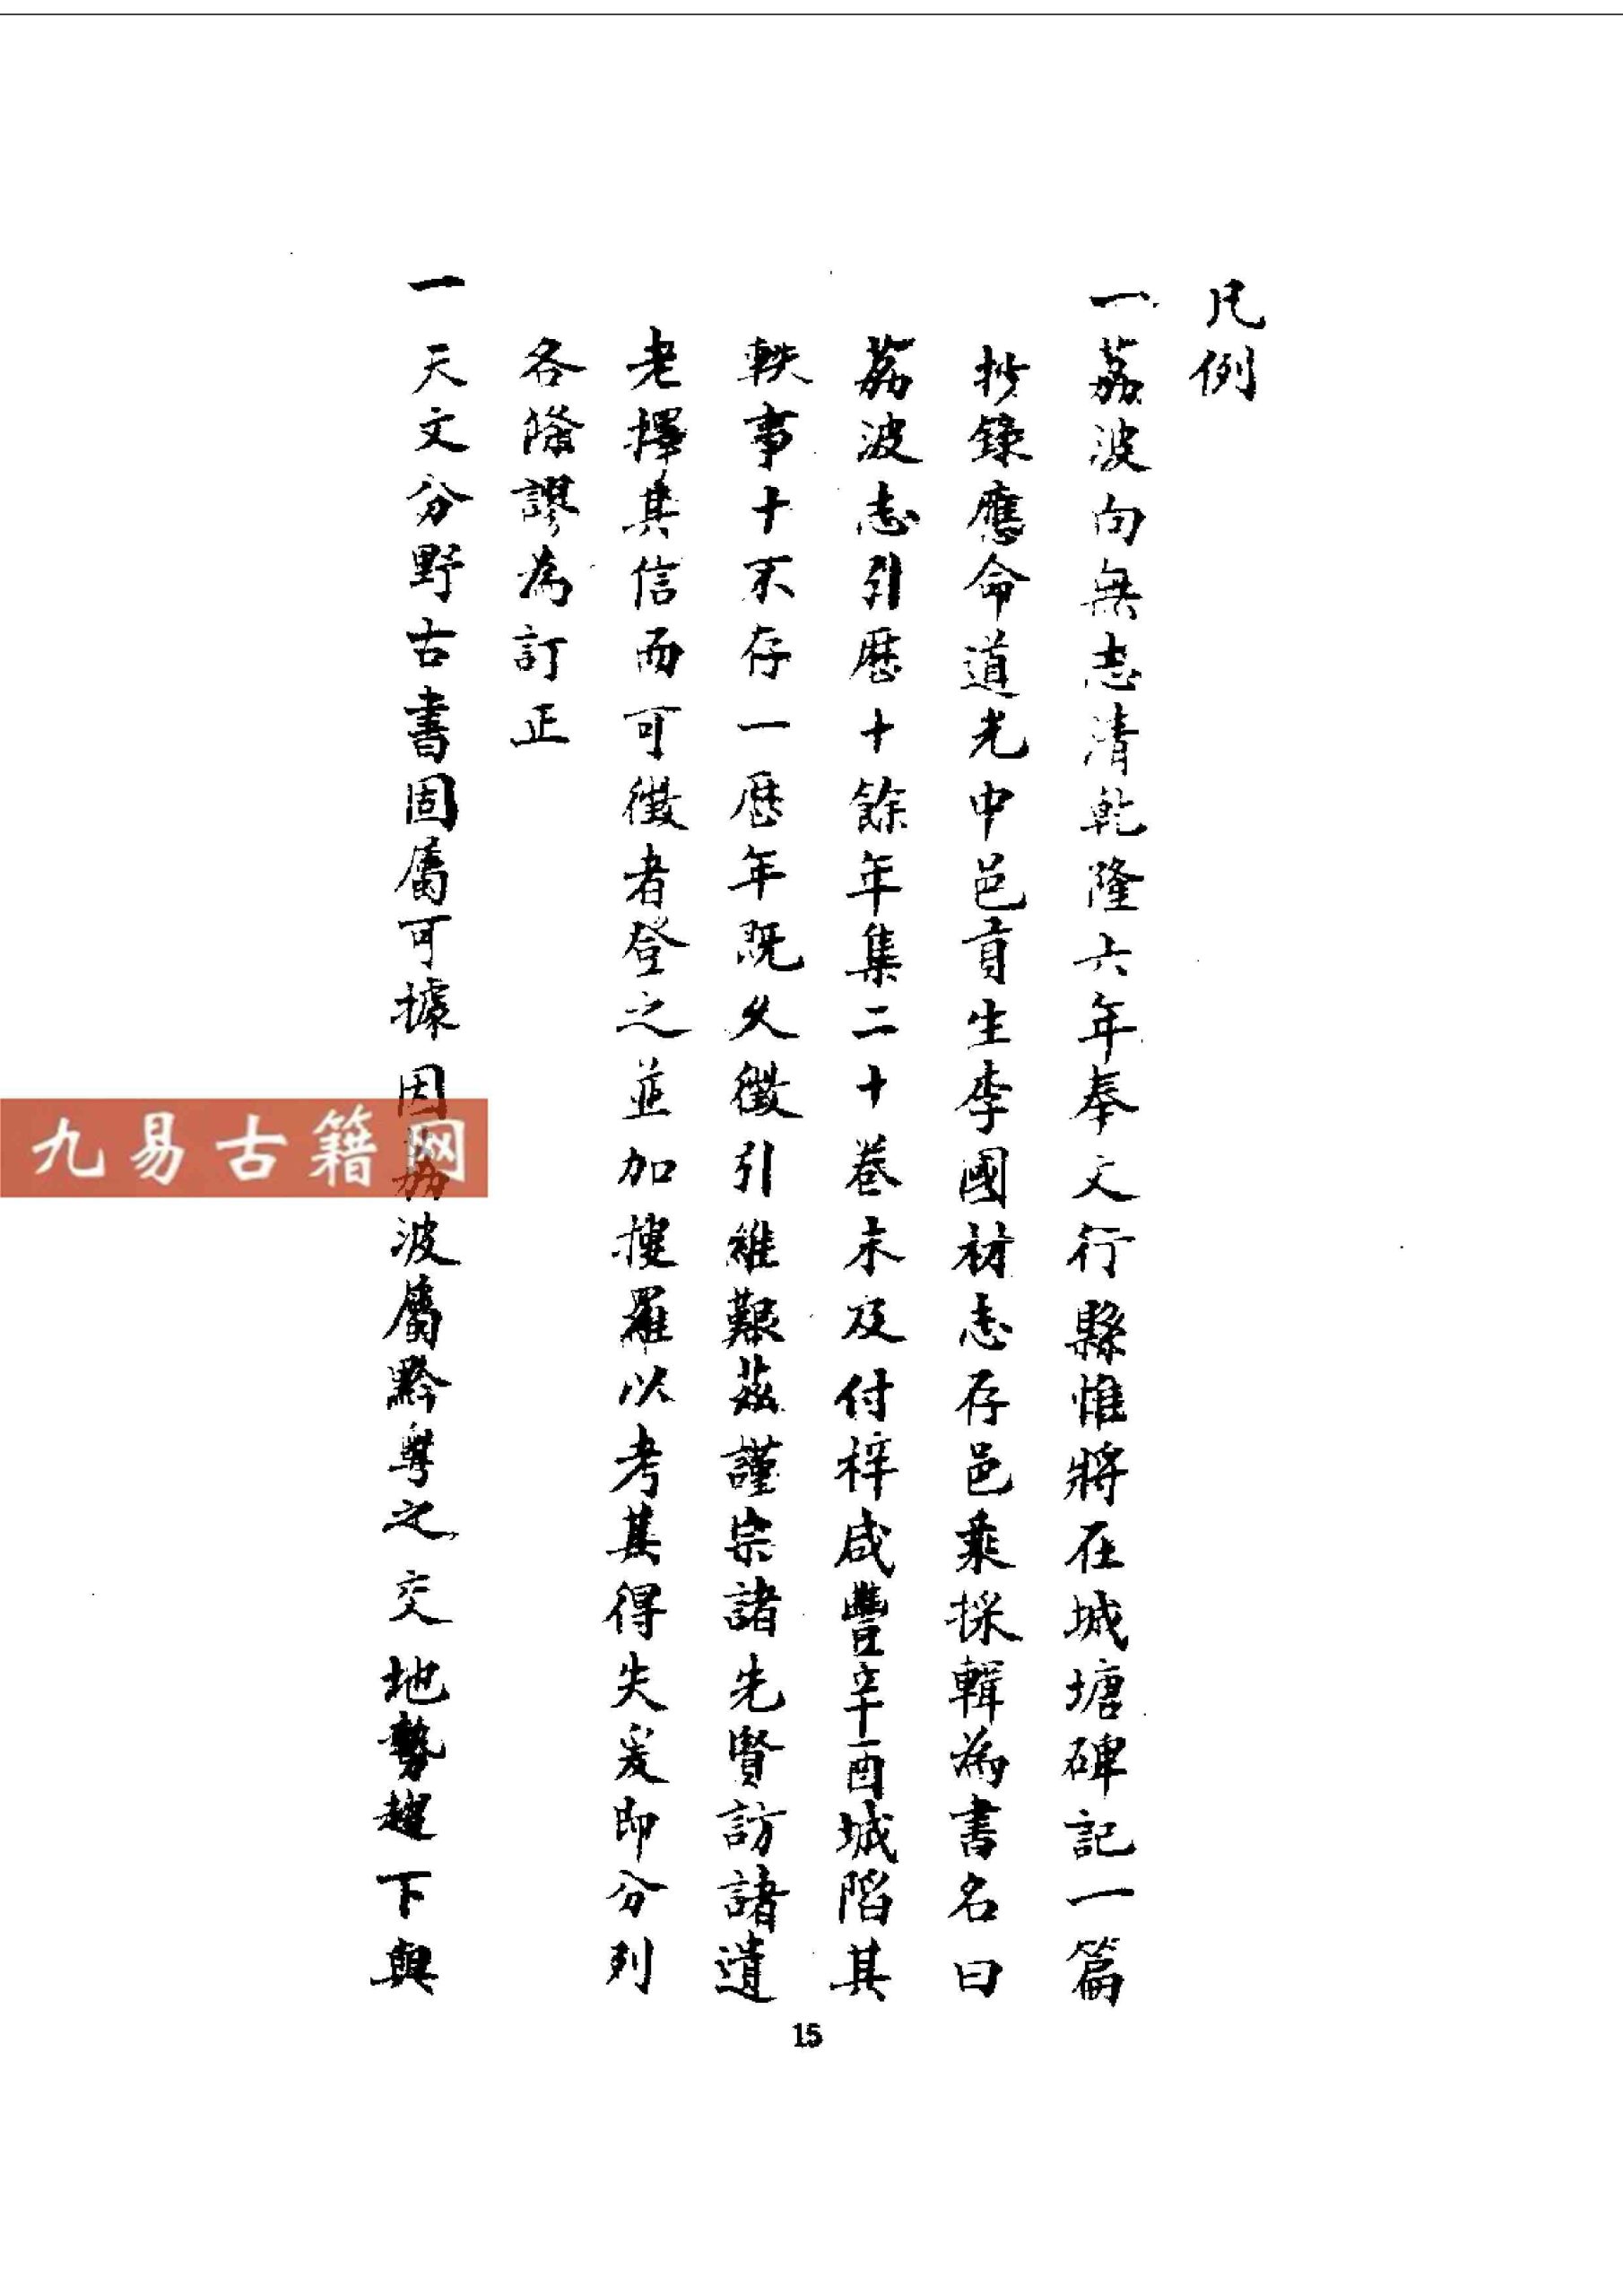 凡例
一荔波向無志清乾隆六年奉文行縣惟將在城塘碑記一篇
抄錄應命道光中邑貢生李國材志存邑乘採輯為書名曰
荔波志引歷十餘年集二十卷未及付梓咸豐辛酉城陷其
軼事十不存一歷年既久徵引維艱茲謹宗諸先賢訪諸遺
老擇其信而可徵者登之並加搜羅以考其得失爰即分列
各條謬為訂正
一天文分野古書固屬可據因荔波屬黔粵之交地勢趨下與
九易古籍网
15